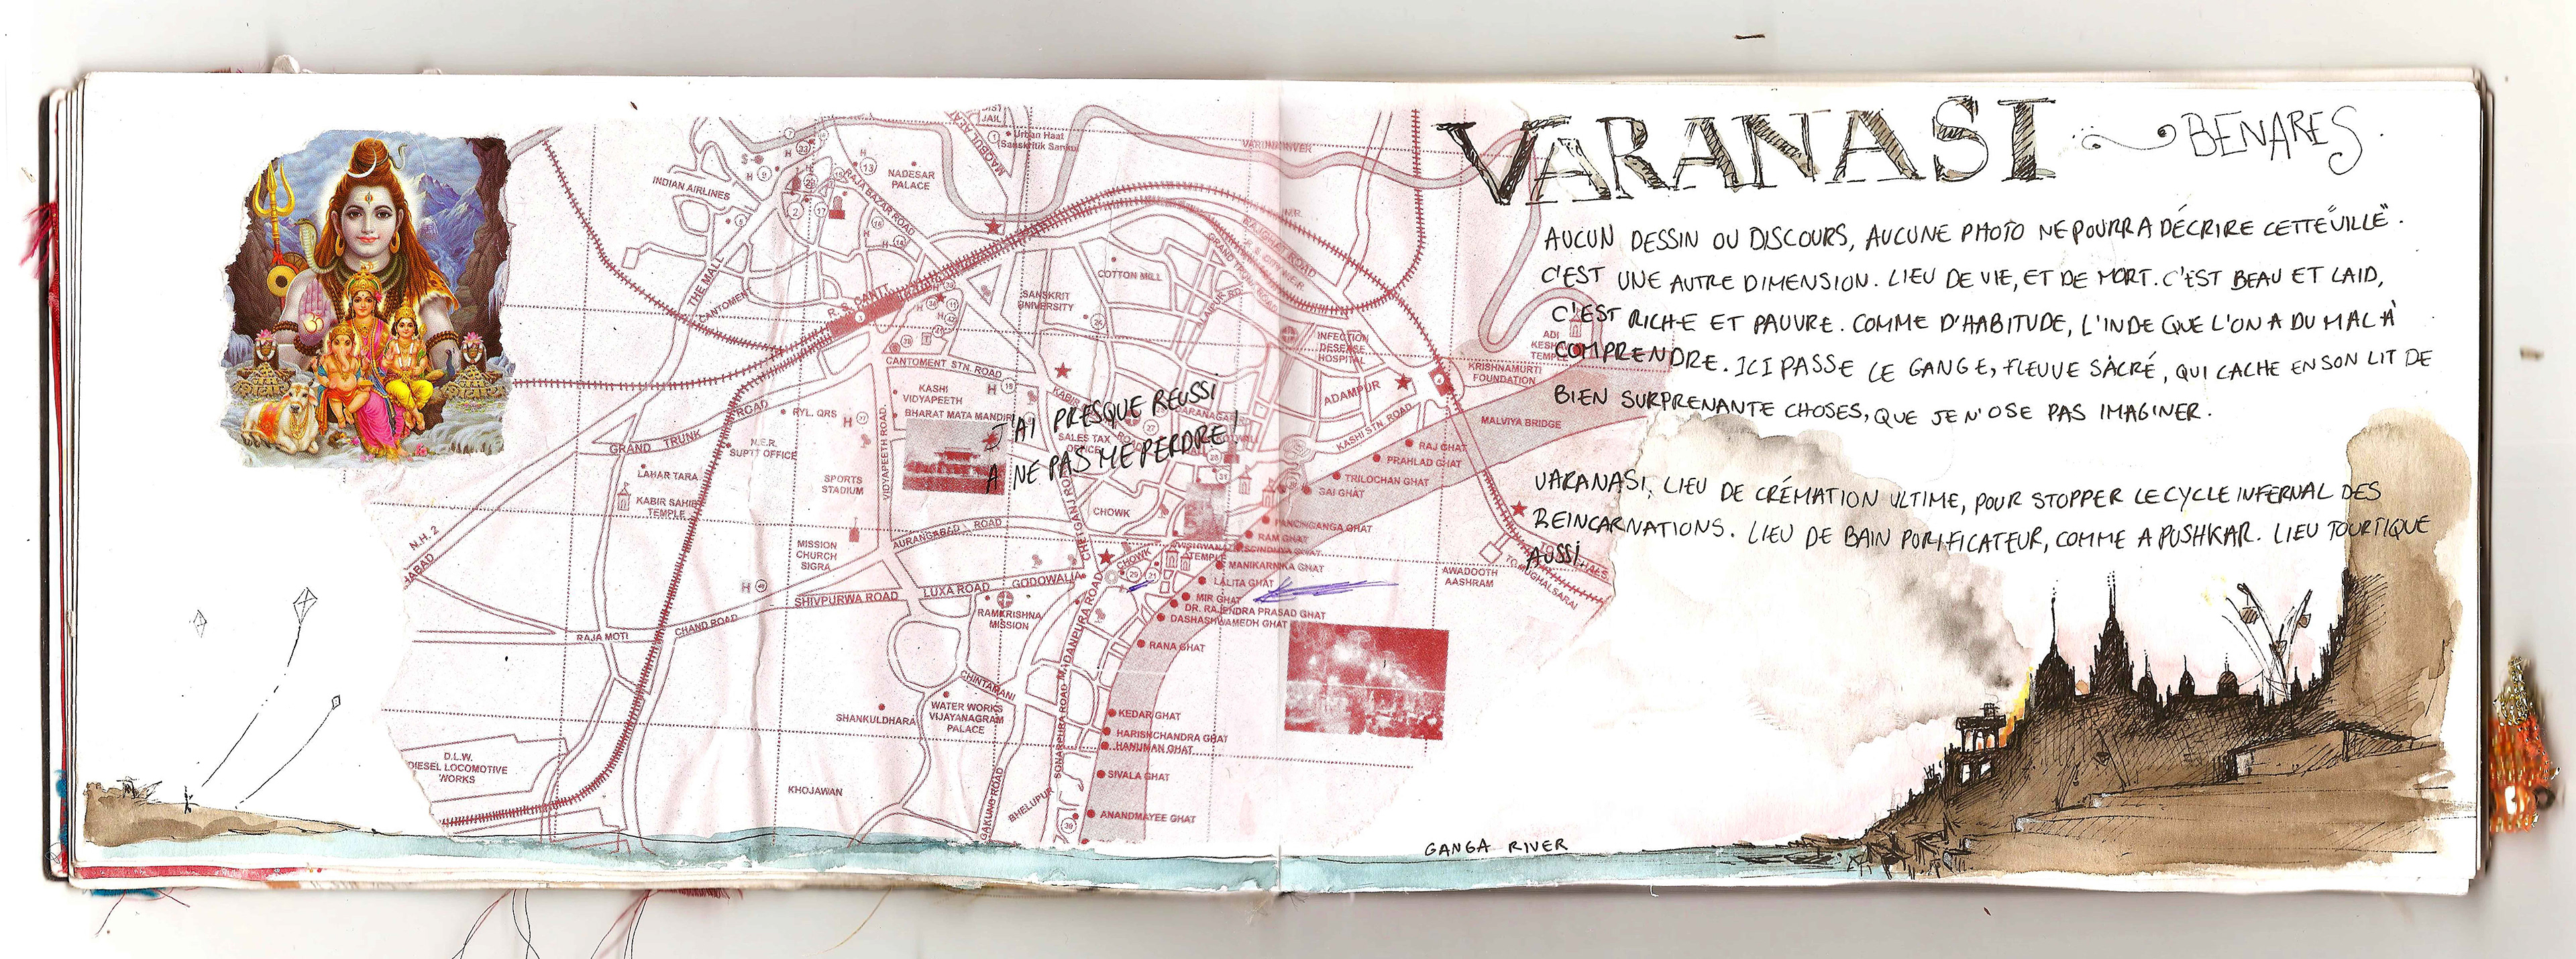 VARANASI BENARES.
AUCUN DESSIN OU DISCOURS, AUCUNE PHOTO NE POURRA DÉCRIRE CETTE "VILLE".
C'EST UNE AUTRE DIMENSION. LIEU DE VIE, ET DE MORT. C'EST BEAU ET LAID,
C'EST RICHE ET PAUVRE. COMME D'HABITUDE, L'INDE QUE L'ON A DU MAL À
COMPRENDRE. ICI PASSE LE GANGE, FLEUVE SACRÉ, QUI CACHE EN SON LIT DE
BIEN SURPRENANTE CHOSES, QUE JE N'OSE PAS IMAGINER.
VARANASI, LIEU DE CRÉMATION ULTIME, POUR STOPPER LE CYCLE INFERNAL DES
REINCARNATIONS. LIEU DE BAIN PURIFICATEUR, COMME A PUSHKAR. LIEU TOURTIQUE
AUSSI.
J'AI PRESQUE REUSSI
A NE PAS ME PERDRE!
GANGA RIVER
JAIL
Urban Haat
(Sanskritik Sankul
MAQBUL ALAM
VARUNA RIVER
INDIAN AIRLINES
NADESAR
PALACE
RAJA BAZAR ROAD
THE MALL
CANTOMENT
R. S. CANTT.
COTTON MILL
SANSKRIT
UNIVERSITY
RAJGHAT ROAD
GRAND TRUNK ROAD
ALAIPUR RD.
INFECTION
DESEASE
HOSPITAL
ADI
KESHAV
TEMPLE
KRISHNAMURTI
FOUNDATION
MALVIYA BRIDGE
ADAMPUR
KASHI STN. ROAD
CANTOMENT STN. ROAD
KASHI
VIDYAPEETH
BHARAT MATA MANDIR
VIDYAPEETH ROAD
KABIR
SALES TAX
OFFICE
RYL. QRS
N.E.R.
SUPTT OFFICE
GRAND TRUNK ROAD
LAHAR TARA
KABIR SAHIB
TEMPLE
SPORTS
STADIUM
N.H. 2
MISSION
CHURCH
SIGRA
AURANGABAD ROAD
CHETGANJ ROAD
CHOWK
CHOWK
TEMPLE
RAJ GHAT
PRAHLAD GHAT
TRILOCHAN GHAT
GAI GHAT
PANCHGANGA GHAT
RAM GHAT
MANIKARNIKA GHAT
LALITA GHAT
MIR GHAT
DR. RAJENDRA PRASAD GHAT
DASHASHWAMEDH GHAT
RANA GHAT
AWADOOTH
AASHRAM
TO MUGHALSARAI
SHIVPURWA ROAD
LUXA ROAD
GODOWALIA
RAMKRISHNA
MISSION
RAJA MOTI
CHAND ROAD
MADANPURA ROAD
CHINTAMANI
SHANKULDHARA
WATER WORKS
VIJAYANAGRAM
PALACE
SONARPURA ROAD
KEDAR GHAT
HARISHCHANDRA GHAT
HANUMAN GHAT
SIVALA GHAT
ANANDMAYEE GHAT
D.L.W.
DIESEL LOCOMOTIVE
WORKS
KHOJAWAN
BHELUPUR